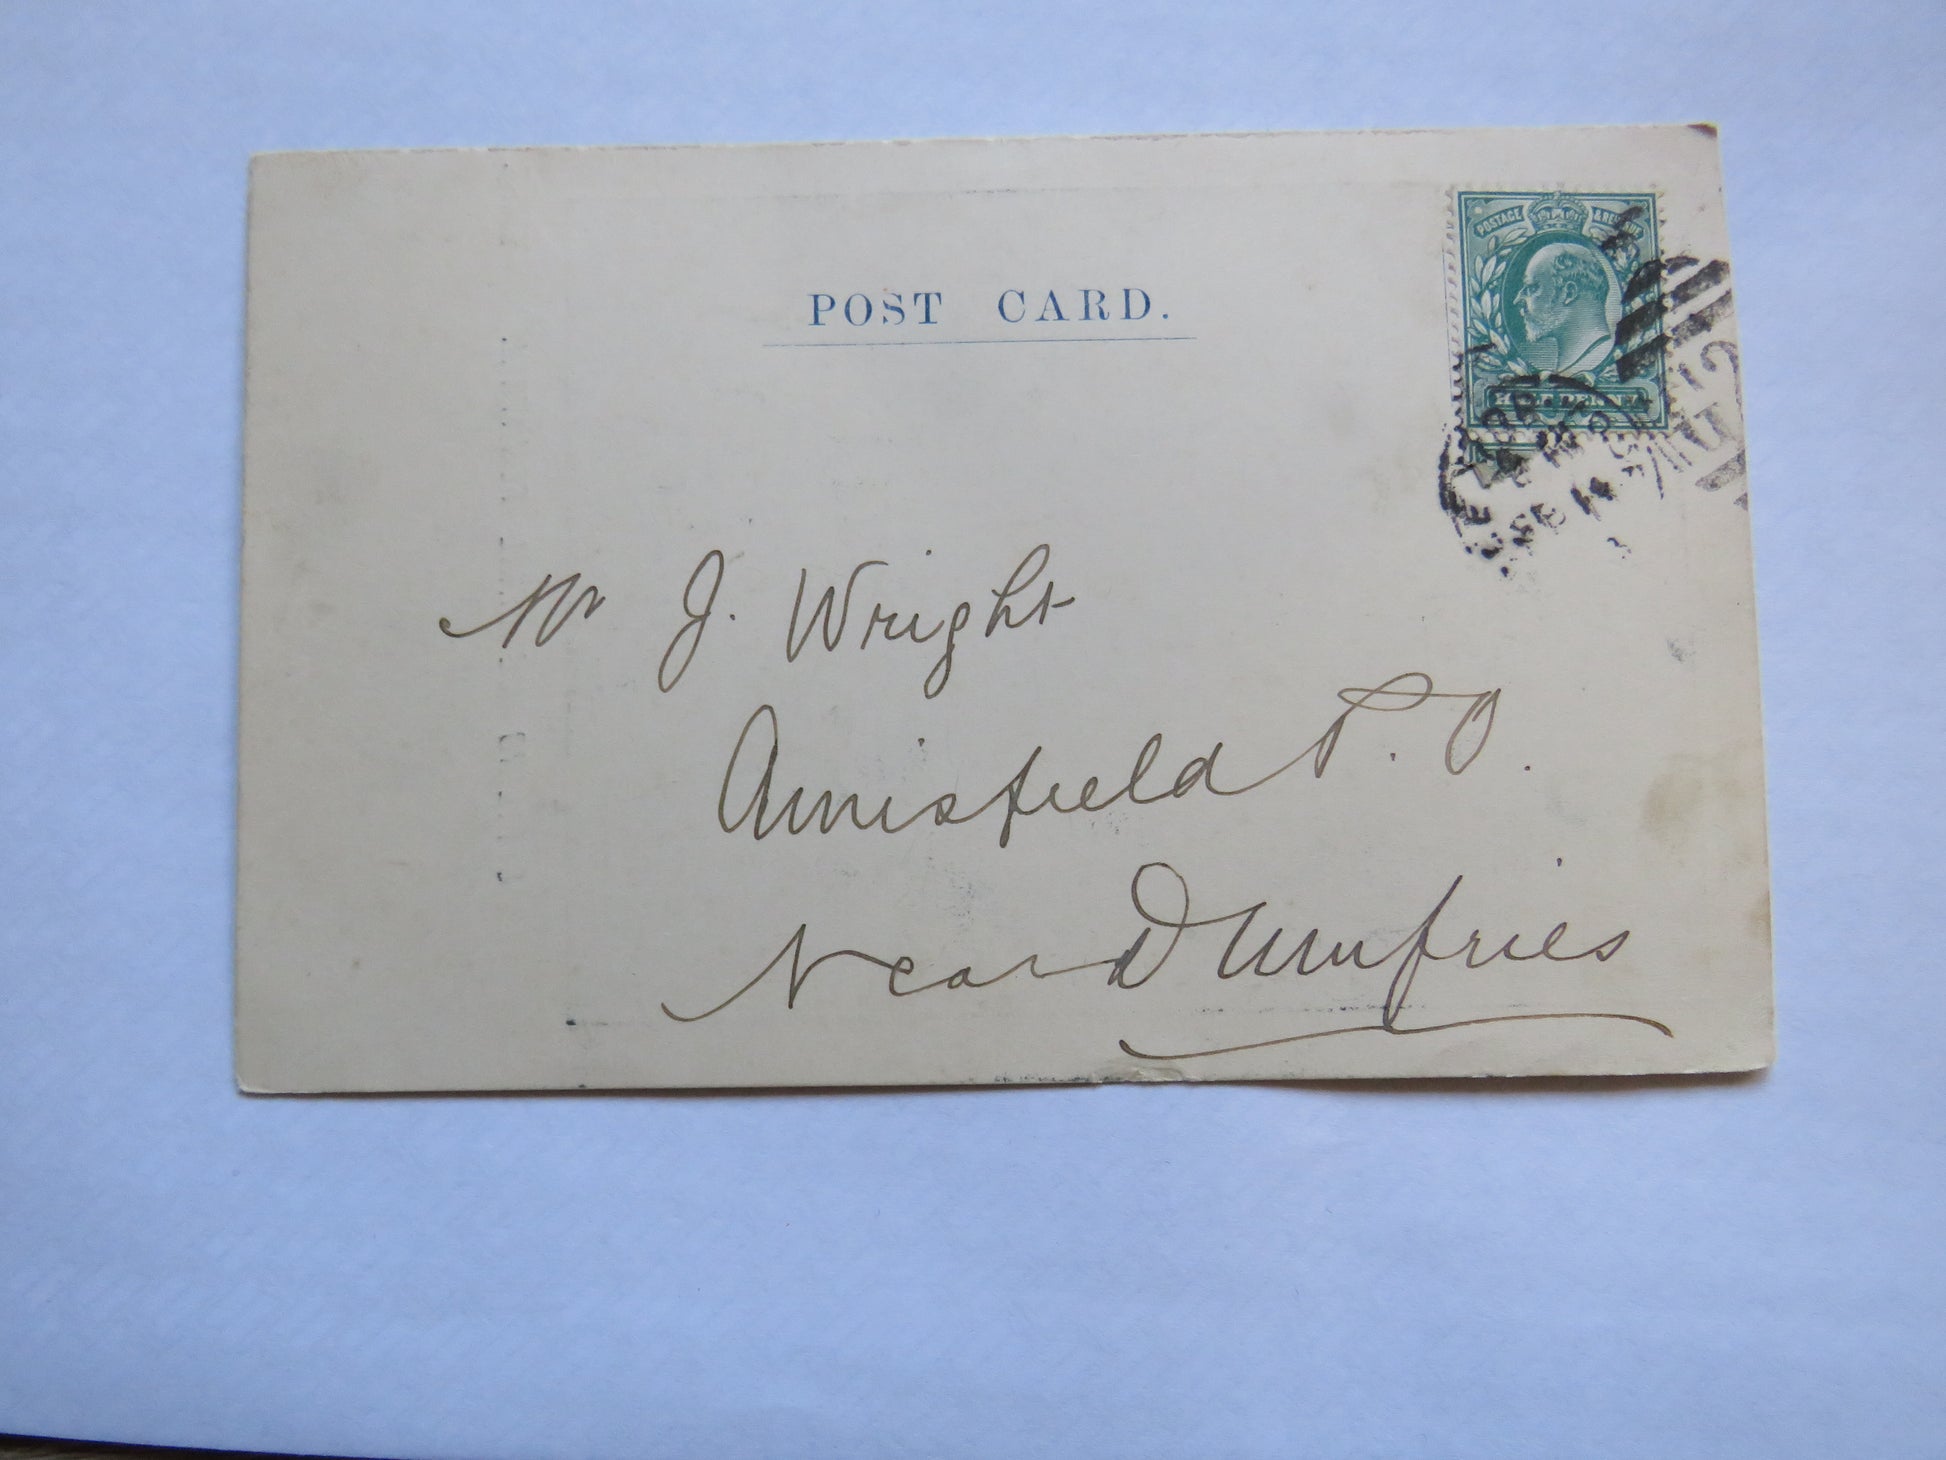 POST CARD.
POSTAGE & REVENUE
HALFPENNY
FE 14
Mr J. Wright
Amisfield P.O.
Near Dumfries